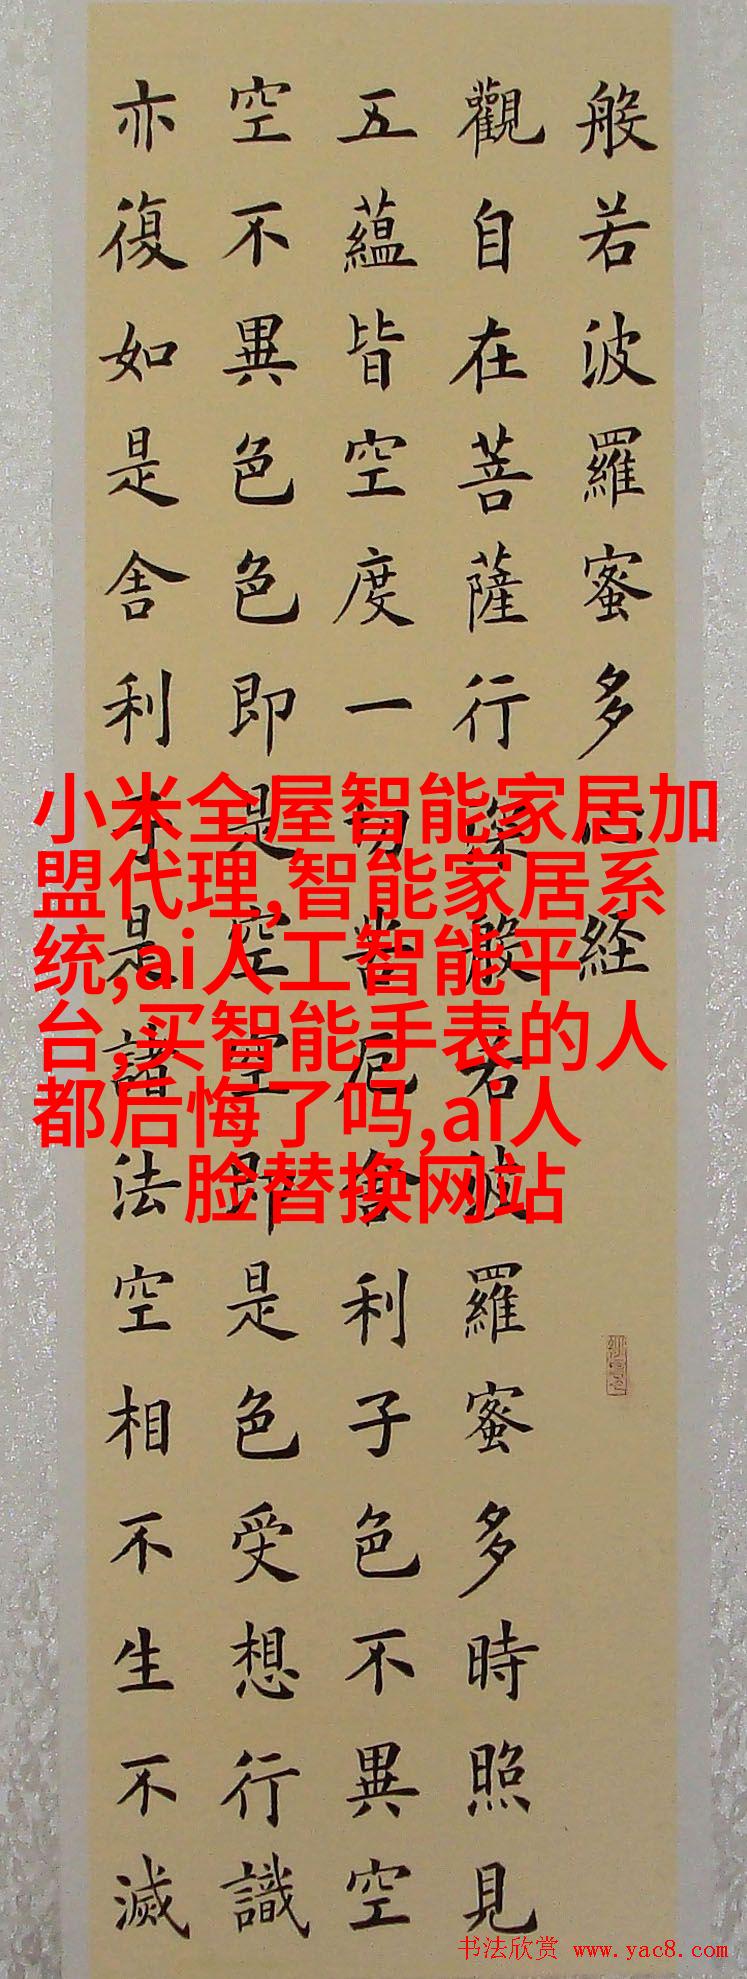 般若波羅蜜多心経
觀自在菩薩行深般若波羅蜜多時照見
五蘊皆空度一切苦厄舍利子色不異空
空不異色色即是空空即是色受想行識
亦復如是舍利子是諸法空相不生不滅
小米全屋智能家居加
盟代理,智能家居系
统,ai人工智能平
台,买智能手表的人
都后悔了吗,ai人
脸替换网站
书法欣赏 www.yac8.com